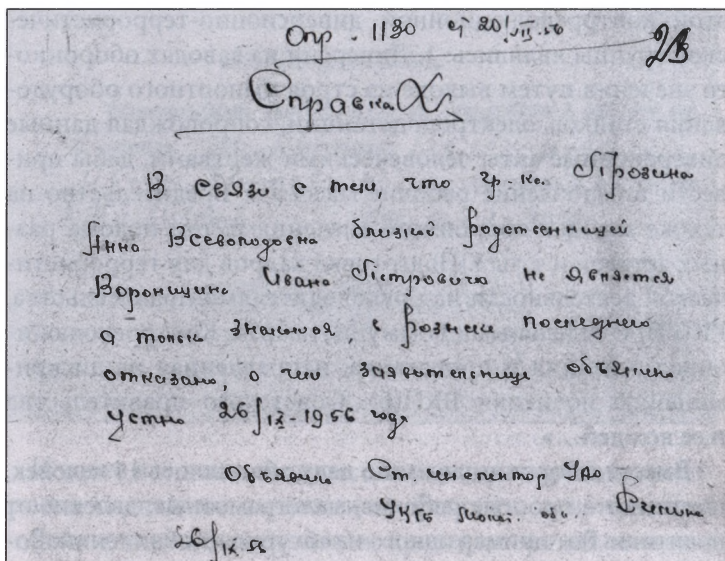 Опр. 1130 от 20/VII.56
Справка
В связи с тем, что гр-ка.
Анна Всеволодовна близкой родственницей
Воронщина Ивана Петровича не является
а только знакомая, в розыске последнего
отказано, о чем заявительнице объявлено
устно 26/IX-1956 года
Объявил Ст. инспектор УАО
УКГБ
26/IX 56